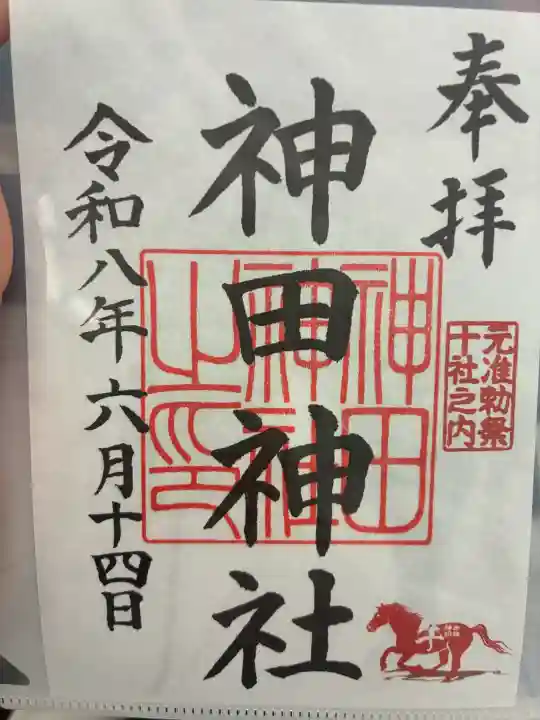 奉拝
元准勅祭
十社之内
神田神社
神田
神社
之印
令和八年六月十四日